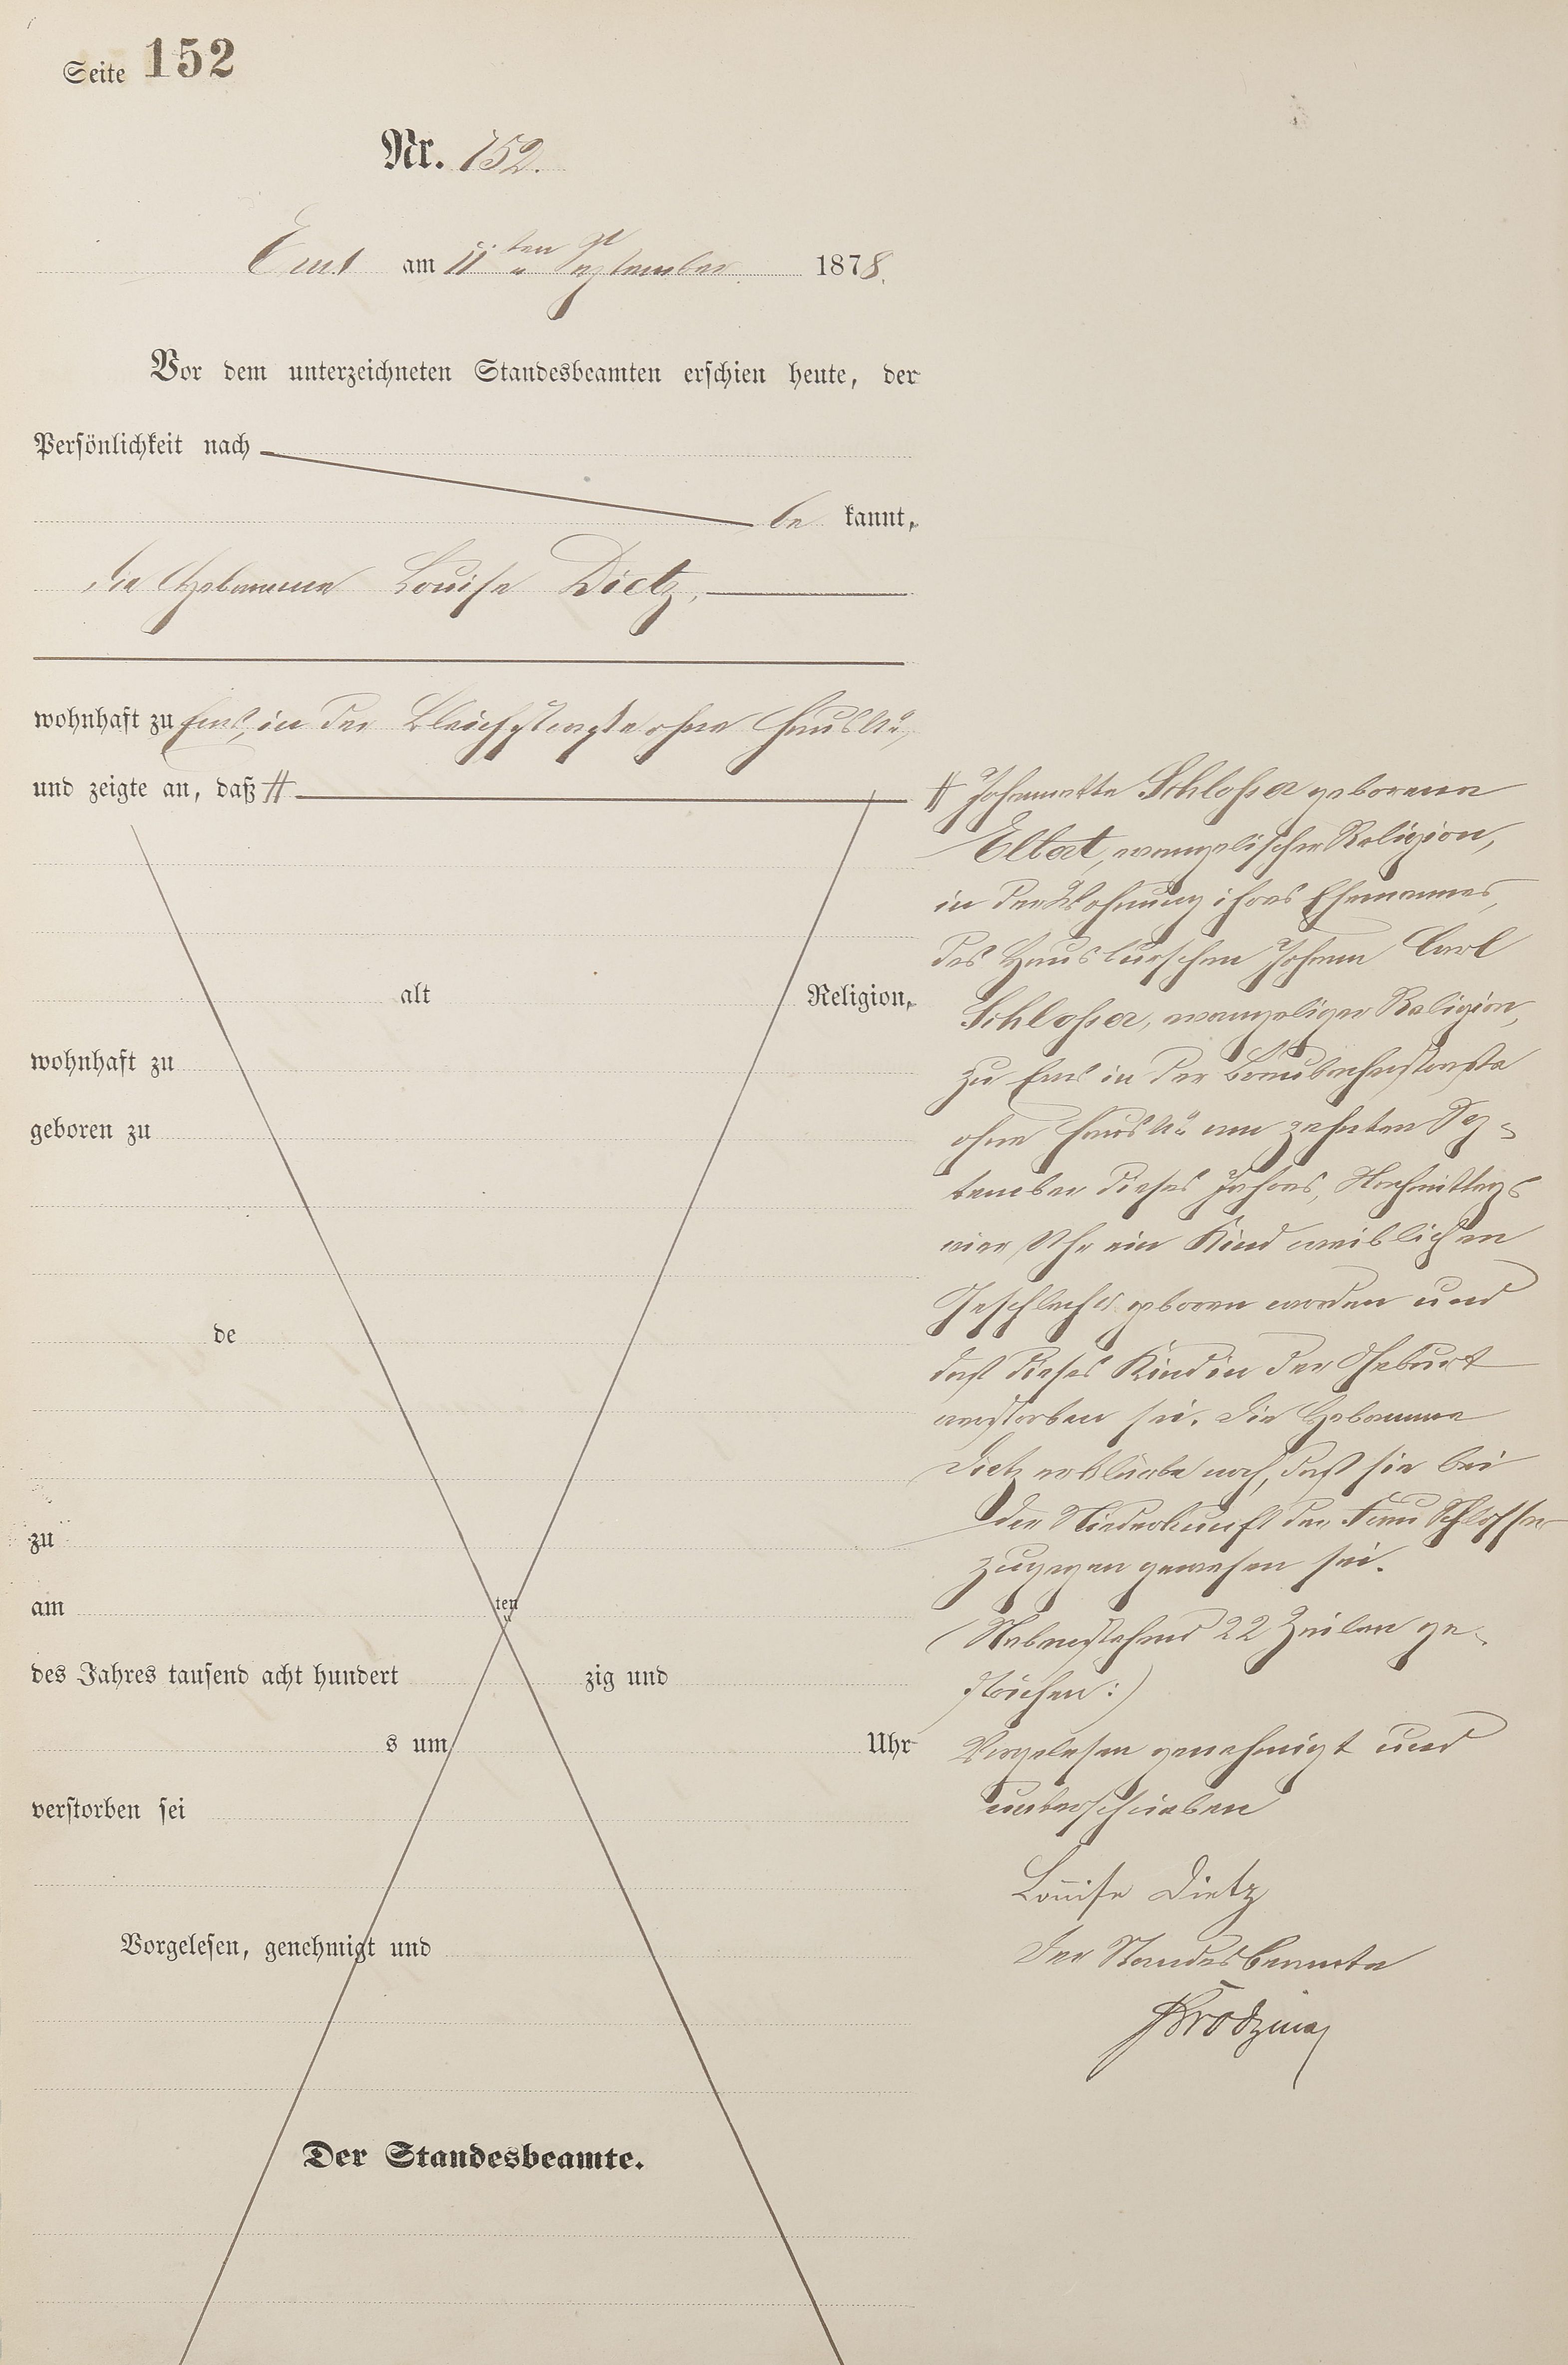 Seite 152
Nr. 152.
Ems am 11ten September 1878.
Vor dem unterzeichneten Standesbeamten erschien heute, der
Persönlichkeit nach
be kannt,
die Hebamme Louise Dietz,
wohnhaft zu Ems, in der Bleichstraße ohne Haus No,
und zeigte an, daß #
alt Religion,
wohnhaft zu
geboren zu
de
zu
am ten
des Jahres tausend acht hundert zig und
s um Uhr
verstorben sei
Vorgelesen, genehmigt und
Der Standesbeamte.
# Johannette Schlosser geborenen
Elbert, evangelischer Religion,
in der Wohnung ihres Ehemannes,
des Hausburschen Johann Carl
Schlosser, evangeliger Religion,
zu Ems in der Braubacherstraße
ohne Haus No am zehnten Sep-
tember dieses Jahres, Nachmittags
vier Uhr ein Kind weiblichen
Geschlechts geboren worden und
daß dieses Kind in der Geburt
verstorben sei. Die Hebamme
Dietz erklärte noch, daß sie bei
der Niederkunft der Frau Schlosser
zugegen gewesen sei.
(Nebenstehend 22 Zeilen ge-
strichen:)
Vorgelesen genehmigt und
unterschrieben
Louise Dietz
Der Standesbeamte